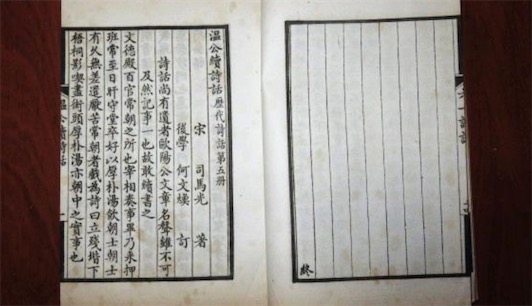 六一詩話
終
溫公續詩話 歷代詩話第五冊
宋 司馬光 著
後學 何文煥 訂
詩話尚有遺者歐陽公文章名聲雖不可
及然記事一也故敢續書之
文德殿百官常朝之所也宰相奏事畢乃來押
班常至日旰守堂卒好以厚朴湯飲朝士朝士
有久無差遣厭苦常朝者戲為詩曰立殘堦下
梧桐影喫盡街頭厚朴湯亦朝中之實事也
溫公續詩話 一